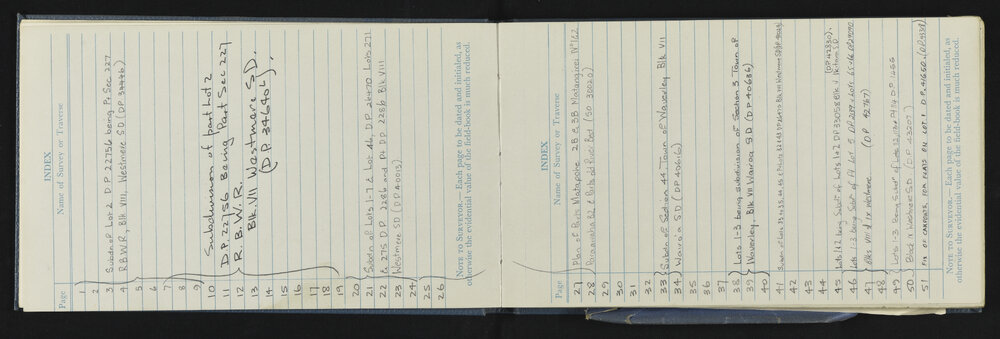 INDEX
Page
Name of Survey or Traverse
1
2
3 Subdn of Lot 2 D P 22756 being Pt Sec 227
4 R B W R, Blk VIII, Westmere S D (D P 34446)
5
6
7
8
9
10 Subdivision of part Lot 2
11 D.P. 22756 Being Part Sec 227
12 R. B. W. R.
13 Blk. VII Westmere S.D.
14 (D.P. 34640).
15
16
17
18
19
20
21 Subdn of Lots 1-7 Lot D.P. 26470 Lots 271
22 & 275 D P 2286 and Pt D P 2286 Blk VIII
23 Westmere S D (D P 40015)
24
25
26
NOTE TO SURVEYOR.—Each page to be dated and initialed, as
otherwise the evidential value of the field-book is much reduced.
INDEX
Page
Name of Survey or Traverse
27 Plan of Parts Matapore 2B & 3B Matangirei
28 & Parts old River Bed (SO 30020)
29
30
31
32
33 Subdn of Section 44 Town of Waverley Blk VII
34 Wairoa S D (D P 40616)
35
36
37
38 Lots 1-3 being subdivision of Section 3 Town of
39 Waverley, Blk VII Wairoa S D (D P 40636)
40
41 Subdn of Lots
42
43
44 (DP 42830).
45 Lots 1+2 being Subdn of Lots 1+2 DP 33058 Blk V
46 Lots 1-3 being Subdn of Pt Lot 5 D P
47 Blks VIII & IX Westmere (D P 42767)
48
49 Lots 1-3 being Subdn of Lots D P 1266
50 Block Westmere S D (D P 43207)
51 PLN OF CARPORTS, FOR FLATS ON LOT 1 D.P.
NOTE TO SURVEYOR.—Each page to be dated and initialed, as
otherwise the evidential value of the field-book is much reduced.